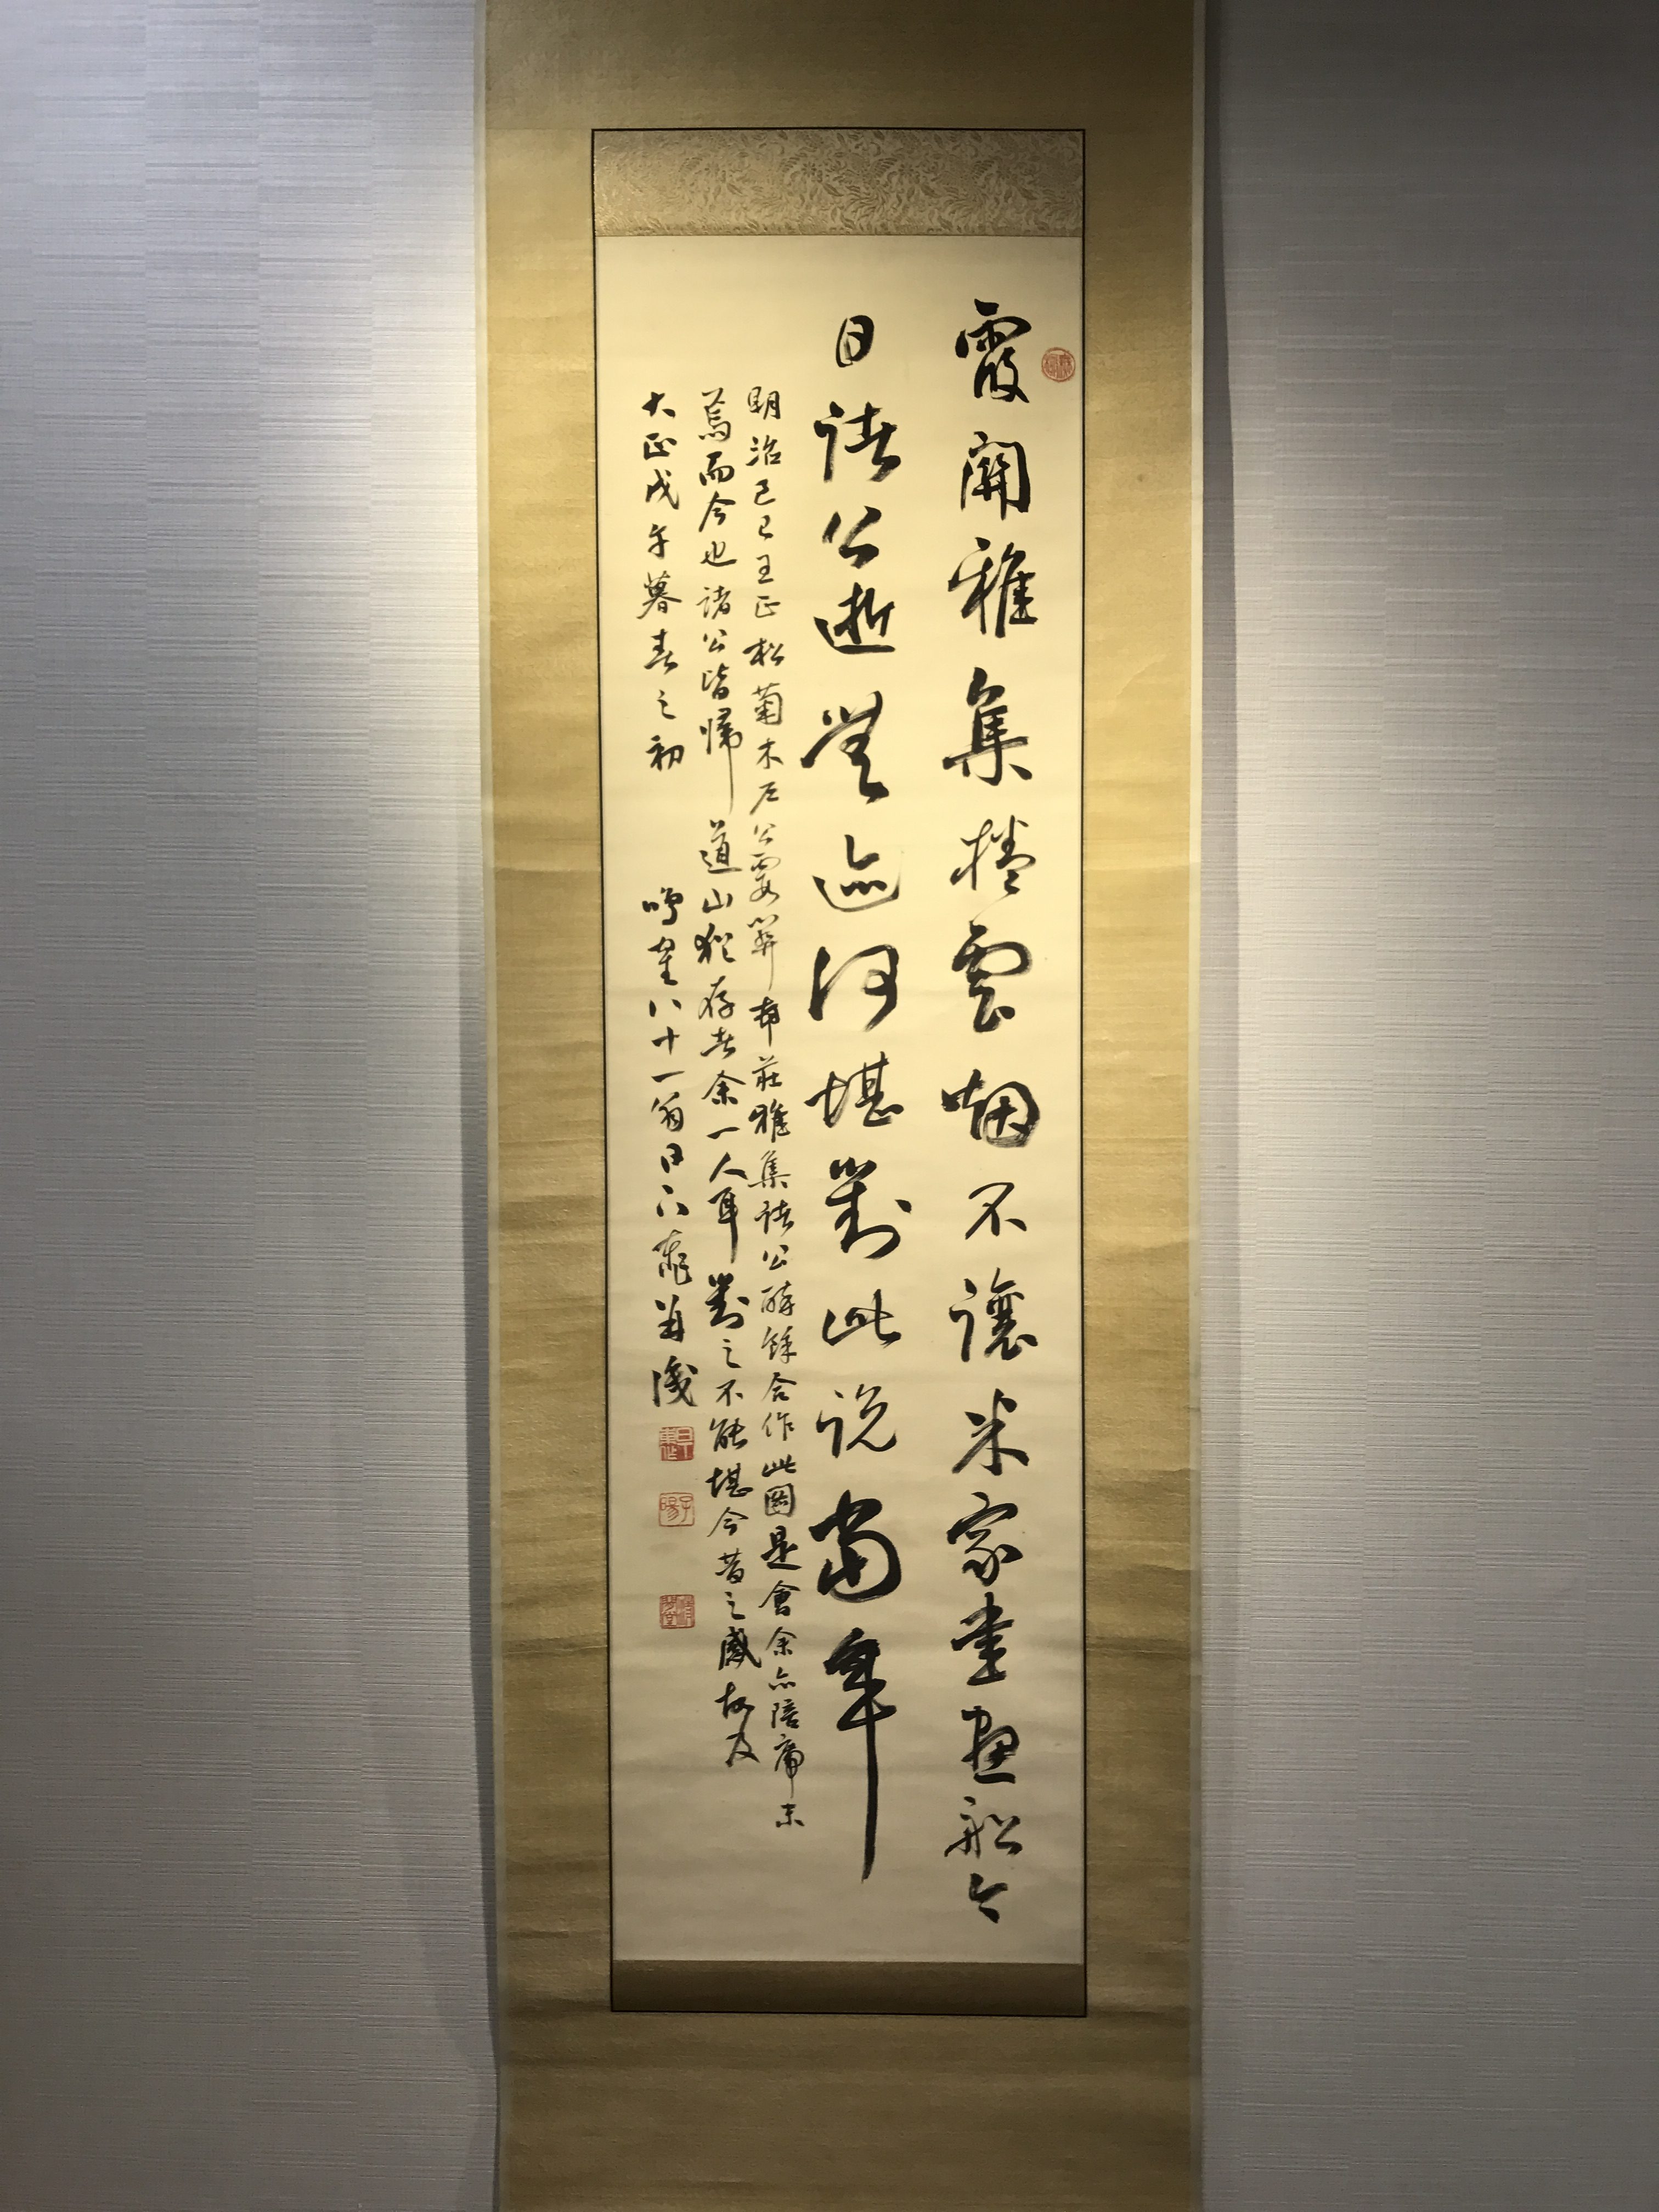 霞関雅集捲雲烟不讓米家書画船今
日諸公逝無迹何堪對此説當年
明治己巳王正松菊木 公霞関 莊雅集諸公酔余合作此圖是會余亦陪席末
焉而今也諸公皆帰道山猶存者余一人耳對之不能堪今昔之感故及
大正戊午暮春之初 鳴 八十一翁日下東 并識